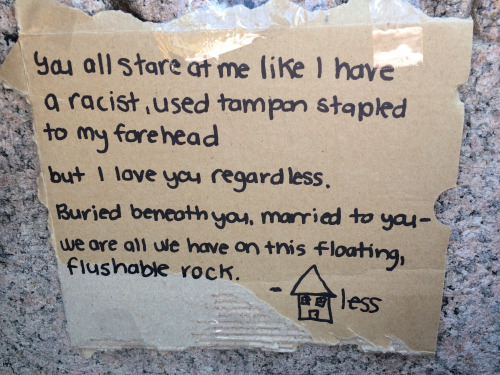 You all stare at me like I have
a racist, used tampon stapled
to my forehead
but I love you regardless.
Buried beneath you, married to you-
we are all we have on this floating,
flushable rock.
- less